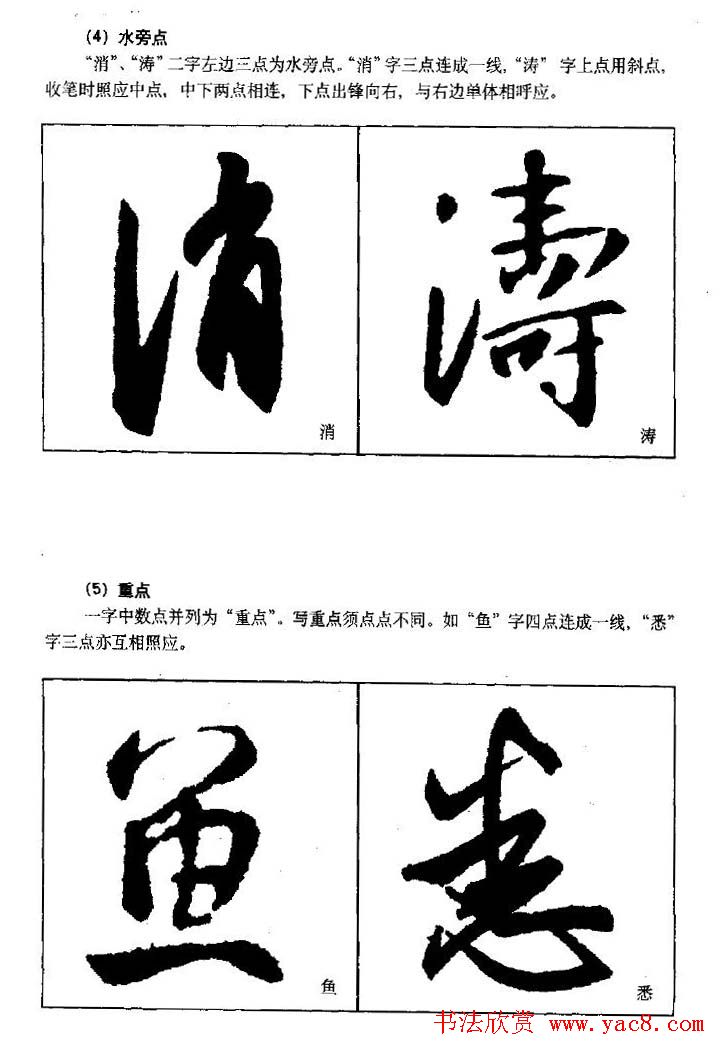 (4) 水旁点
“消”、“涛”二字左边三点为水旁点。“消”字三点连成一线，“涛” 字上点用斜点，
收笔时照应中点，中下两点相连，下点出锋向右，与右边单体相呼应。
消 濤
消 涛
(5) 重点
一字中数点并列为“重点”。写重点须点点不同。如“鱼”字四点连成一线，“悉”
字三点亦互相照应。
鱼 悉
鱼 悉
书法欣赏 www.yac8.com